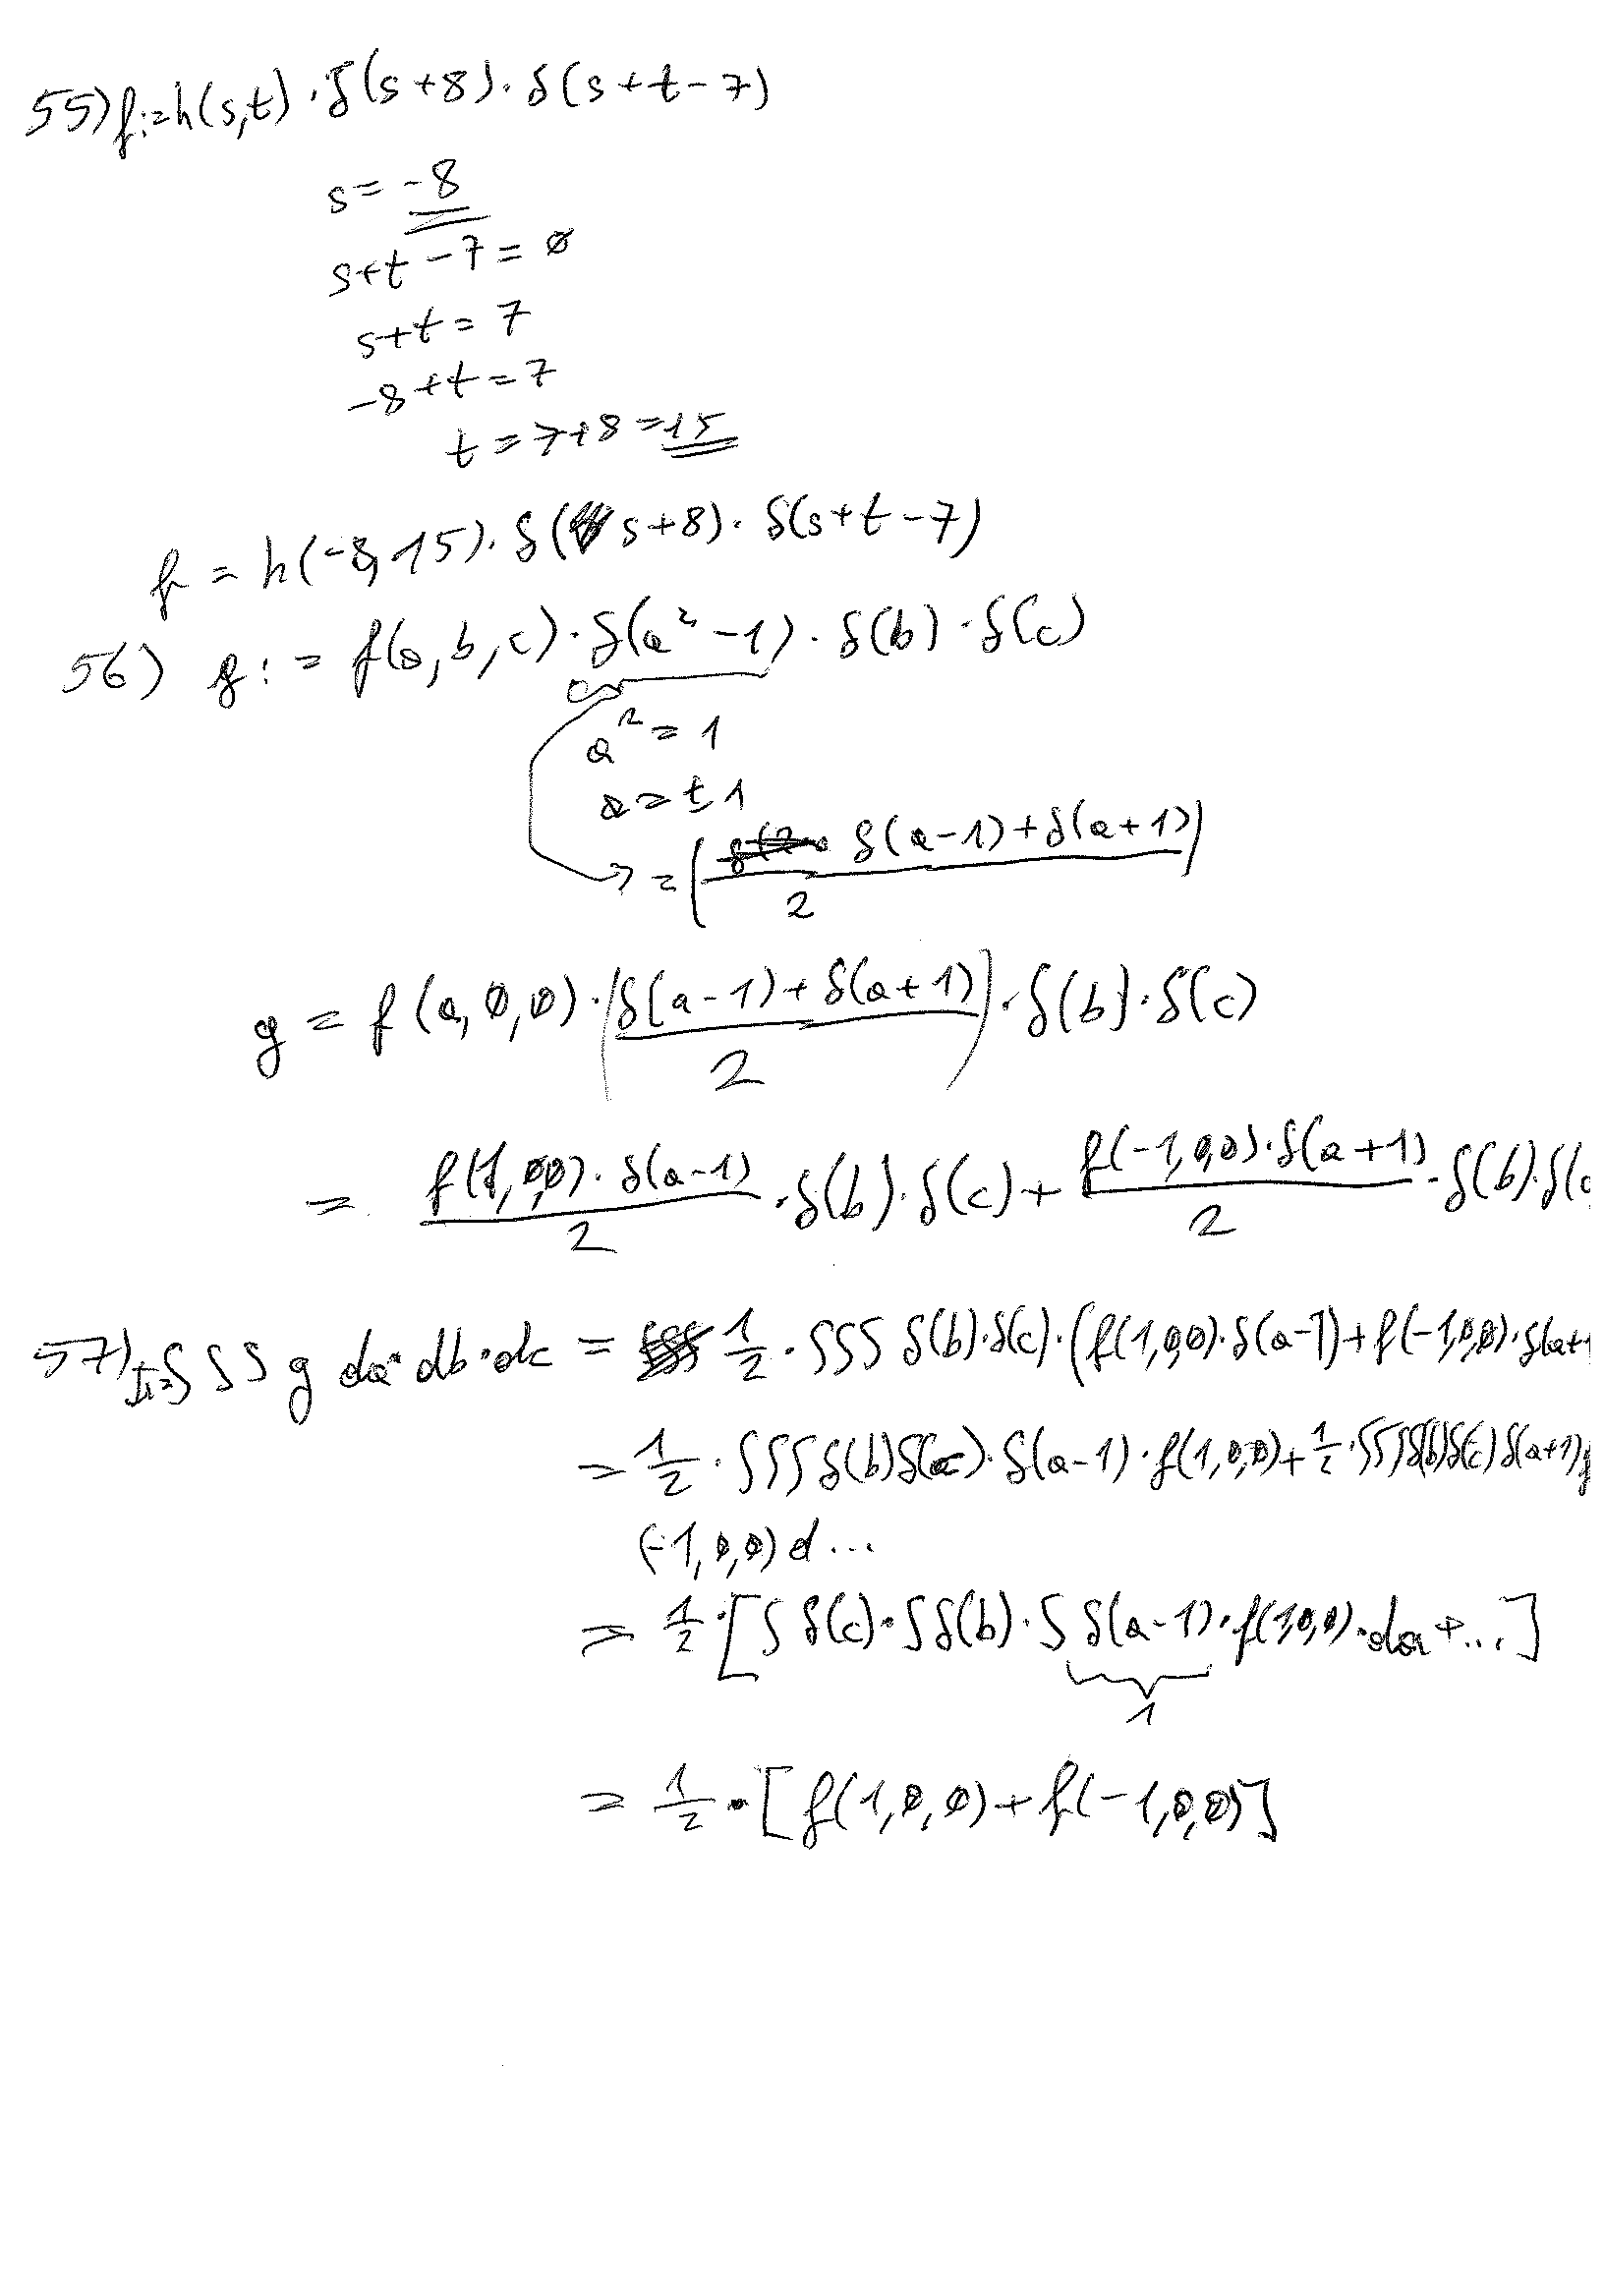 55) f:=h(s,t)·δ(s+8)·δ(s+t-7)
s=-8
s+t-7=0
s+t=7
-8+t=7
t=7+8=15
f=h(-8,15)·δ(s+8)·δ(s+t-7)
56) g:=f(a,b,c)·δ(a²-1)·δ(b)·δ(c)
a²=1
a=±1
=(δ(a-1)+δ(a+1)/2)
g=f(a,0,0)·(δ(a-1)+δ(a+1)/2)·δ(b)·δ(c)
=f(1,0,0)·δ(a-1)/2·δ(b)·δ(c)+f(-1,0,0)·δ(a+1)/2·δ(b)·δ(c
57) I:=∫∫∫ g da·db·dc = 1/2·∫∫∫ δ(b)·δ(c)·(f(1,0,0)·δ(a-1)+f(-1,0,0)·δ(a+1
=1/2·∫∫∫δ(b)δ(c)·δ(a-1)·f(1,0,0)+1/2·∫∫∫δ(b)δ(c)δ(a+1)f
(-1,0,0)d...
=1/2·[∫δ(c)·∫δ(b)·∫δ(a-1)·f(1,0,0)·da+...]
1
=1/2·[f(1,0,0)+f(-1,0,0)]